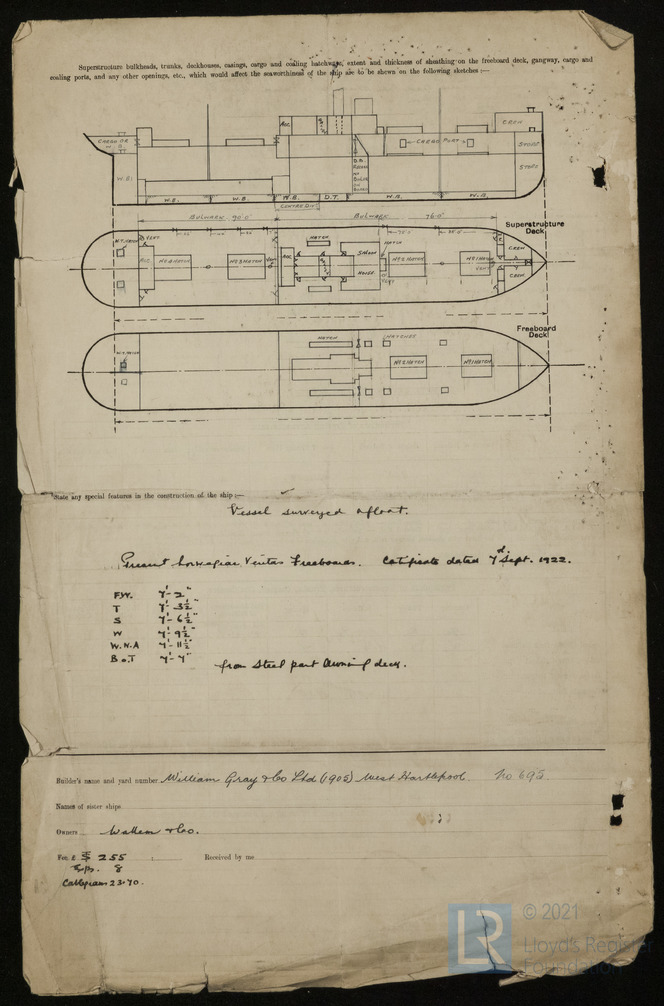 Superstructure bulkheads, trunks, deckhouses, casings, cargo and coaling hatchways, extent and thickness of sheathing on the freeboard deck, gangway, cargo and
coaling ports, and any other openings, etc., which would affect the seaworthiness of the ship are to be shewn on the following sketches :—
CREW
ACC.
CARGO OR
W.B.
CARGO PORT
STORE
STORE
W.B.
W.B. W.B. W.B. D.T. W.B. W.B.
CENTRE DIV.
BULWARK 90'0" BULWARK 76'0"
Superstructure
Deck
VENT HATCH HATCH CREW
ACC. No 4 HATCH No 3 HATCH ACC. No 2 HATCH No 1 HATCH
VENT VENT CREW
Freeboard
Deck
HATCH HATCHES
No 2 HATCH No 1 HATCH
State any special features in the construction of the ship :—
Vessel surveyed afloat.
Present Norwegian Veritas Freeboards. Certificate dated 7th Sept. 1922.
F.W. 7'-2"
T 7'-3½"
S 7'-6½"
W 7'-9½"
W.N.A 7'-11½"
B.o.T 7'-4" from steel part Awning deck.
Builder's name and yard number William Gray & Co Ltd (1905) West Hartlepool. No 695.
Names of sister ships
Owners Wallem & Co.
Fee £ $ 255 Received by me
Exps. 8
Cablegrams 23.70.
© 2021
LR
Lloyd's Register
Foundation